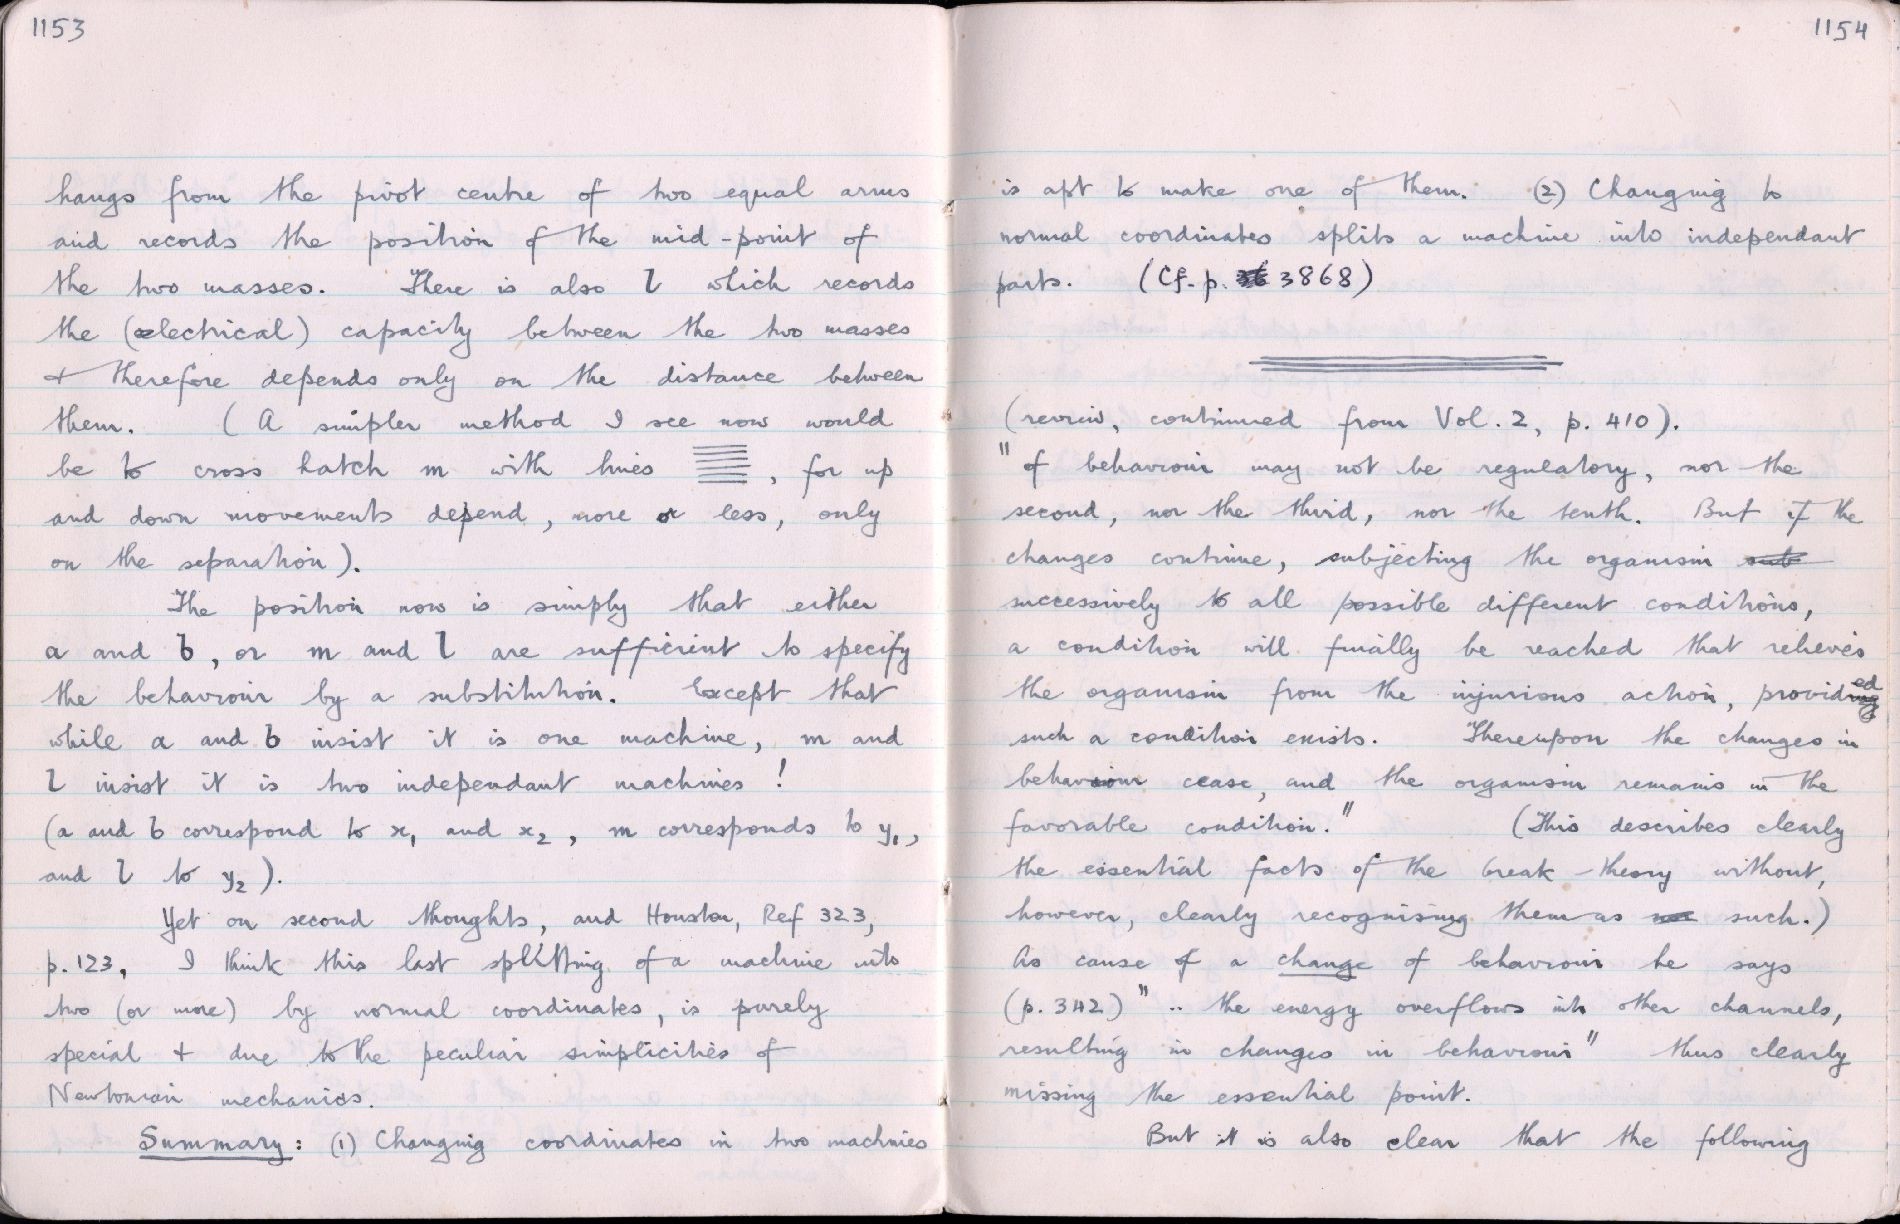 1153
hangs from the pivot centre of two equal arms
and records the position of the mid-point of
the two masses. There is also l which records
the (electrical) capacity between the two masses
+ therefore depends only on the distance between
them. (A simpler method I see now would
be to cross hatch m with lines , for up
and down movements depend, more or less, only
on the separation).
The position now is simply that either
a and b, or m and l are sufficient to specify
the behaviour by a substitution. Except that
while a and b insist it is one machine, m and
l insist it is two independant machines!
(a and b correspond to x₁ and x₂, m corresponds to y₁,
and l to y₂).
Yet on second thoughts, and Houston, Ref 323,
p.123, I think this last splitting of a machine into
two (or more) by normal coordinates, is purely
special + due to the peculiar simplicities of
Newtonian mechanics.
Summary: (1) Changing coordinates in two machines
1154
is apt to make one of them. (2) Changing to
normal coordinates splits a machine into independant
parts. (Cf. p. 36 3868)
(review, continued from Vol. 2, p. 410).
"of behaviour may not be regulatory, nor the
second, nor the third, nor the tenth. But if the
changes continue, subjecting the organism sub
successively to all possible different conditions,
a condition will finally be reached that relieves
the organism from the injurious action, provided
such a condition exists. Thereupon the changes in
behaviour cease, and the organism remains in the
favorable condition." (This describes clearly
the essential facts of the break-theory without,
however, clearly recognising them as such.)
As cause of a change of behaviour he says
(p. 342) " .. the energy overflows into other channels,
resulting in changes in behaviour" thus clearly
missing the essential point.
But it is also clear that the following